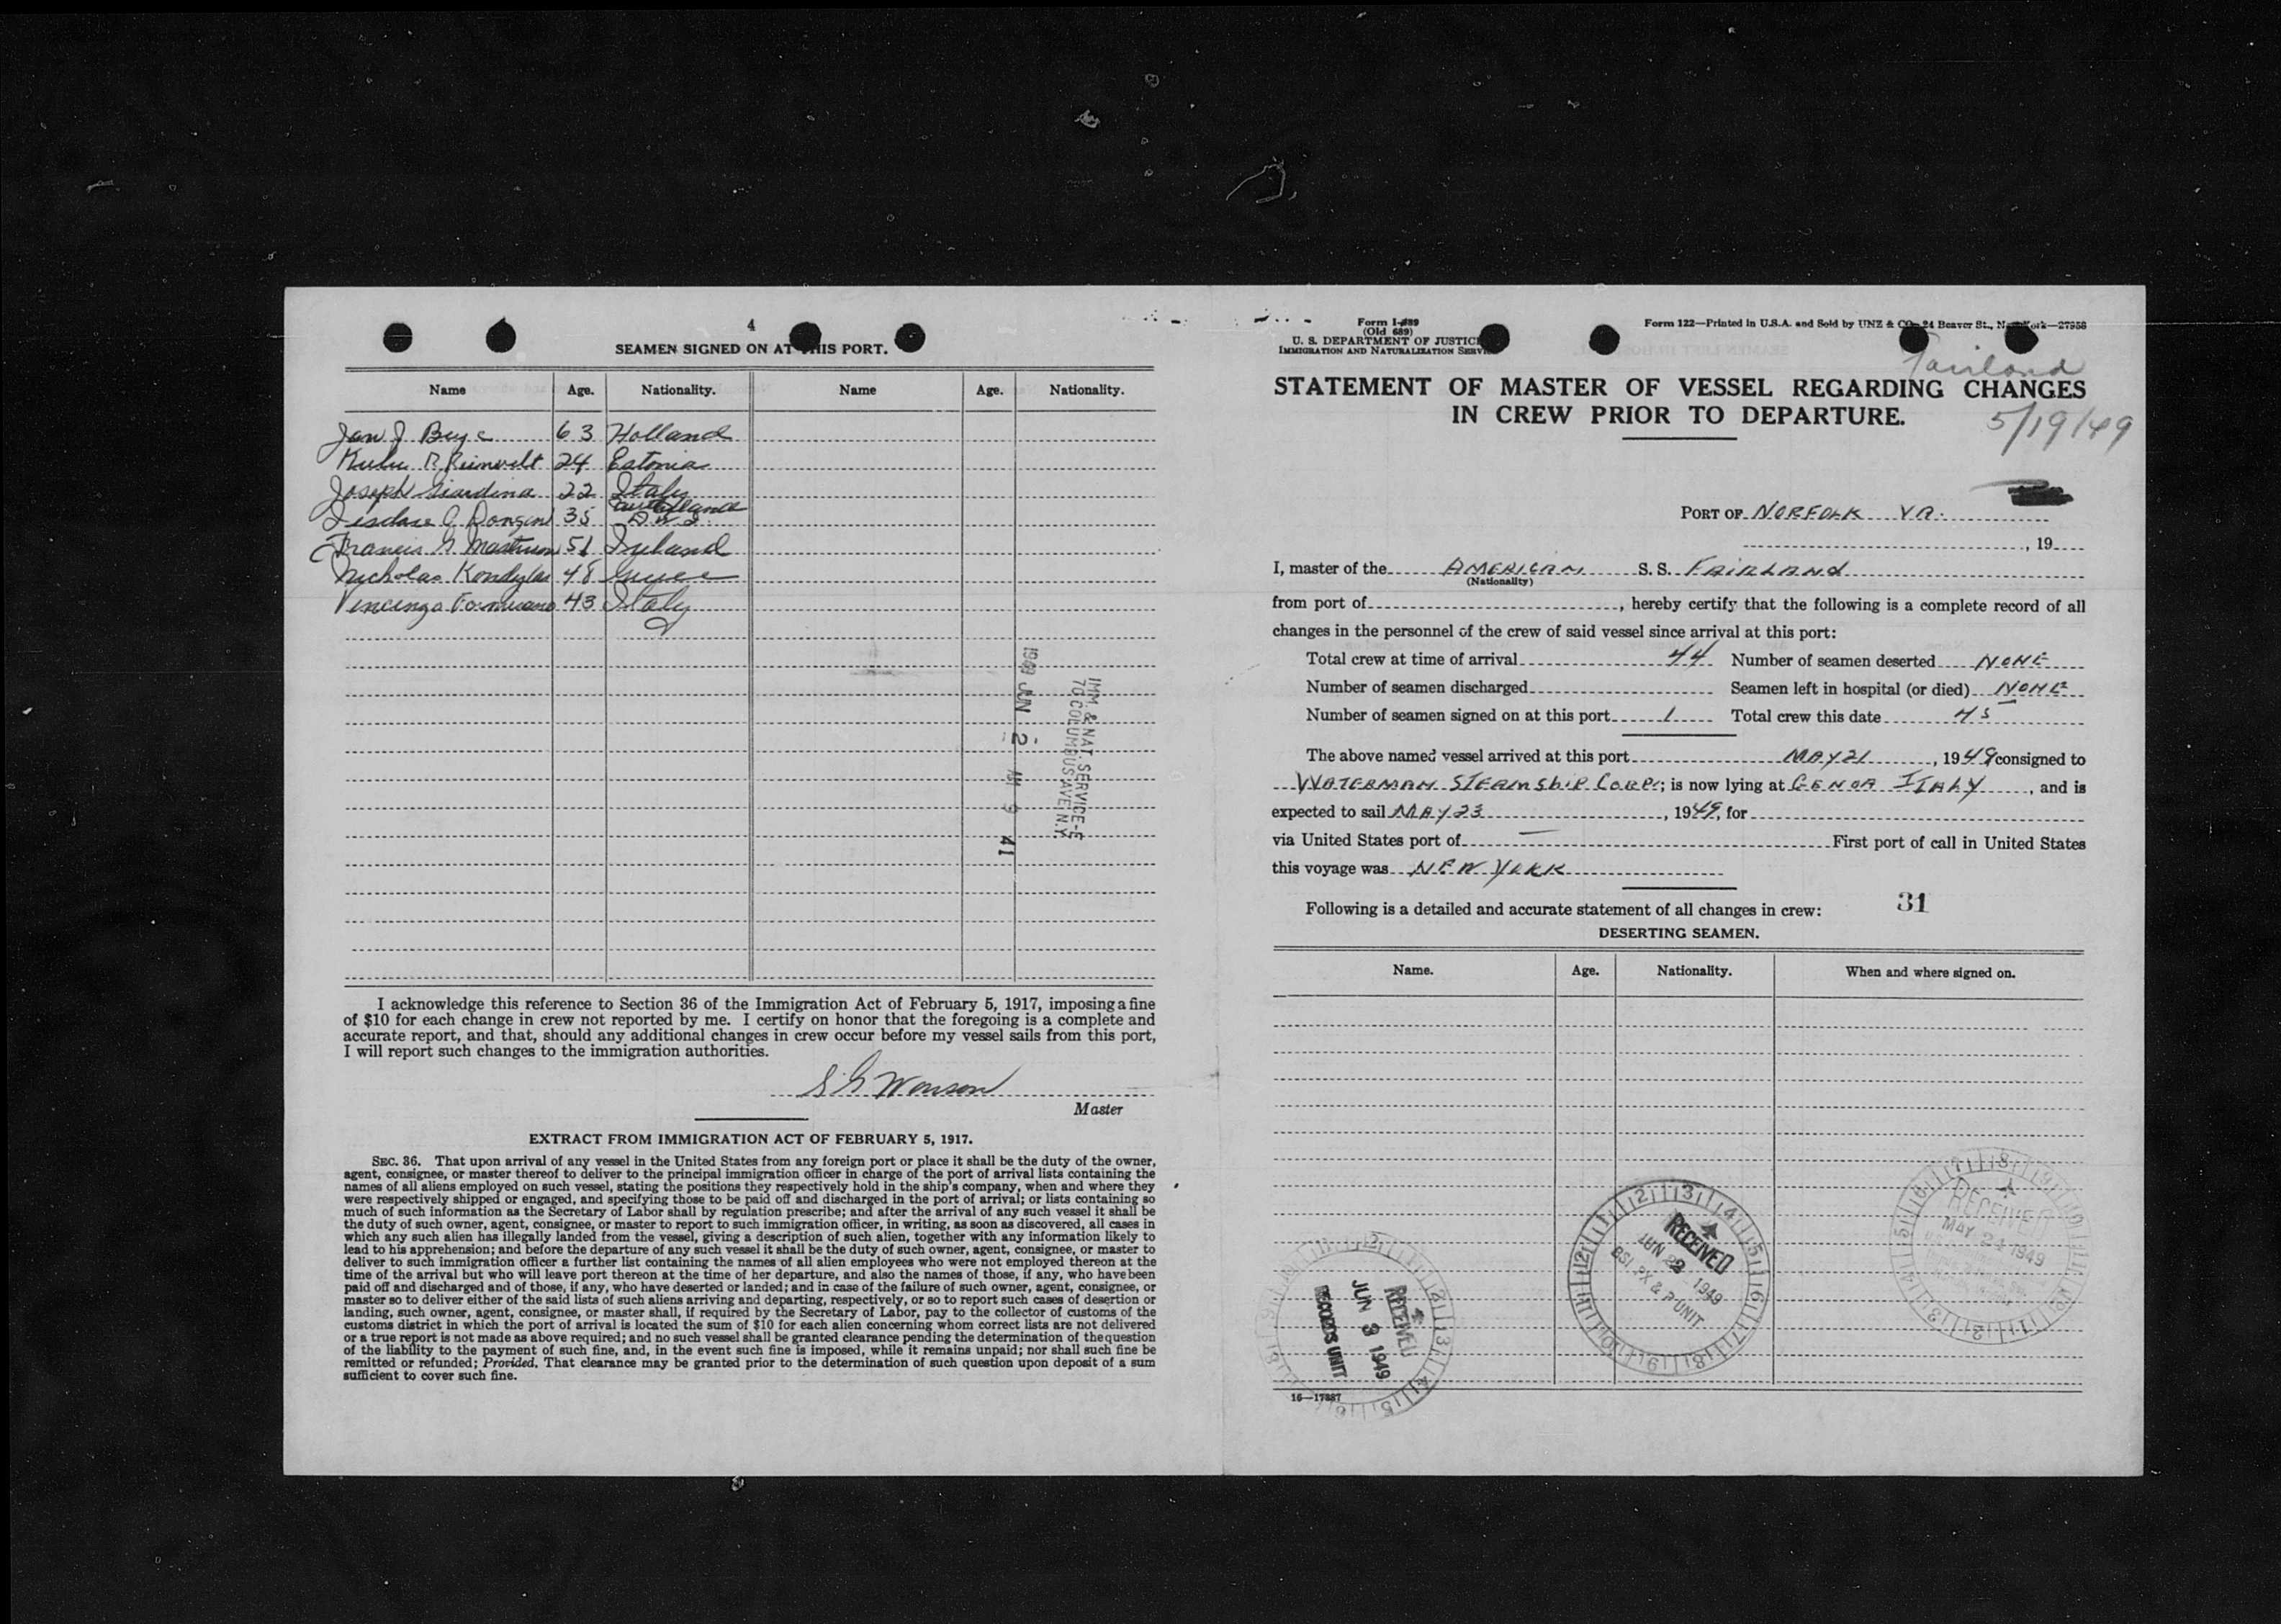 4
SEAMEN SIGNED ON AT THIS PORT.
Name Age. Nationality. Name Age. Nationality.
Jan J Beye 63 Holland
R 24 Estonia
Joseph Giardina 22 Italy
35 D.W.I.
Francis 51 Ireland
Nicholas Kondylas 48
Vincenzo 43 Italy
IMM. & NAT. SERVICE-E
70 COLUMBUS AVE N.Y.
1949 JUN -2 AM 9 41
I acknowledge this reference to Section 36 of the Immigration Act of February 5, 1917, imposing a fine
of $10 for each change in crew not reported by me. I certify on honor that the foregoing is a complete and
accurate report, and that, should any additional changes in crew occur before my vessel sails from this port,
I will report such changes to the immigration authorities.
S G Wonson
Master
EXTRACT FROM IMMIGRATION ACT OF FEBRUARY 5, 1917.
SEC. 36. That upon arrival of any vessel in the United States from any foreign port or place it shall be the duty of the owner,
agent, consignee, or master thereof to deliver to the principal immigration officer in charge of the port of arrival lists containing the
names of all aliens employed on such vessel, stating the positions they respectively hold in the ship's company, when and where they
were respectively shipped or engaged, and specifying those to be paid off and discharged in the port of arrival; or lists containing so
much of such information as the Secretary of Labor shall by regulation prescribe; and after the arrival of any such vessel it shall be
the duty of such owner, agent, consignee, or master to report to such immigration officer, in writing, as soon as discovered, all cases in
which any such alien has illegally landed from the vessel, giving a description of such alien, together with any information likely to
lead to his apprehension; and before the departure of any such vessel it shall be the duty of such owner, agent, consignee, or master to
deliver to such immigration officer a further list containing the names of all alien employees who were not employed thereon at the
time of the arrival but who will leave port thereon at the time of her departure, and also the names of those, if any, who have been
paid off and discharged and of those, if any, who have deserted or landed; and in case of the failure of such owner, agent, consignee, or
master so to deliver either of the said lists of such aliens arriving and departing, respectively, or so to report such cases of desertion or
landing, such owner, agent, consignee, or master shall, if required by the Secretary of Labor, pay to the collector of customs of the
customs district in which the port of arrival is located the sum of $10 for each alien concerning whom correct lists are not delivered
or a true report is not made as above required; and no such vessel shall be granted clearance pending the determination of the question
of the liability to the payment of such fine, and, in the event such fine is imposed, while it remains unpaid; nor shall such fine be
remitted or refunded; Provided, That clearance may be granted prior to the determination of such question upon deposit of a sum
sufficient to cover such fine.
Form I-489
(Old 689)
U. S. DEPARTMENT OF JUSTICE
IMMIGRATION AND NATURALIZATION SERVICE
Form 122—Printed in U.S.A. and Sold by UNZ & CO., 24 Beaver St., New York—27958
Fairland
STATEMENT OF MASTER OF VESSEL REGARDING CHANGES
IN CREW PRIOR TO DEPARTURE.
5/19/49
PORT OF NORFOLK VA.
, 19
I, master of the AMERICAN S. S. FAIRLAND
(Nationality)
from port of , hereby certify that the following is a complete record of all
changes in the personnel of the crew of said vessel since arrival at this port:
Total crew at time of arrival 44 Number of seamen deserted NONE
Number of seamen discharged Seamen left in hospital (or died) NONE
Number of seamen signed on at this port 1 Total crew this date 45
The above named vessel arrived at this port MAY 21, 1949 consigned to
WATERMAN STEAMSHIP CORP.; is now lying at GENOA ITALY, and is
expected to sail MAY 23, 1949, for
via United States port of — First port of call in United States
this voyage was NEW YORK
Following is a detailed and accurate statement of all changes in crew: 31
DESERTING SEAMEN.
Name. Age. Nationality. When and where signed on.
RECEIVED
MAY 24 1949
RECEIVED
JUN 2 1949
BSI PX & P UNIT
RECEIVED
JUN 3 1949
RECORDS UNIT
16—17887